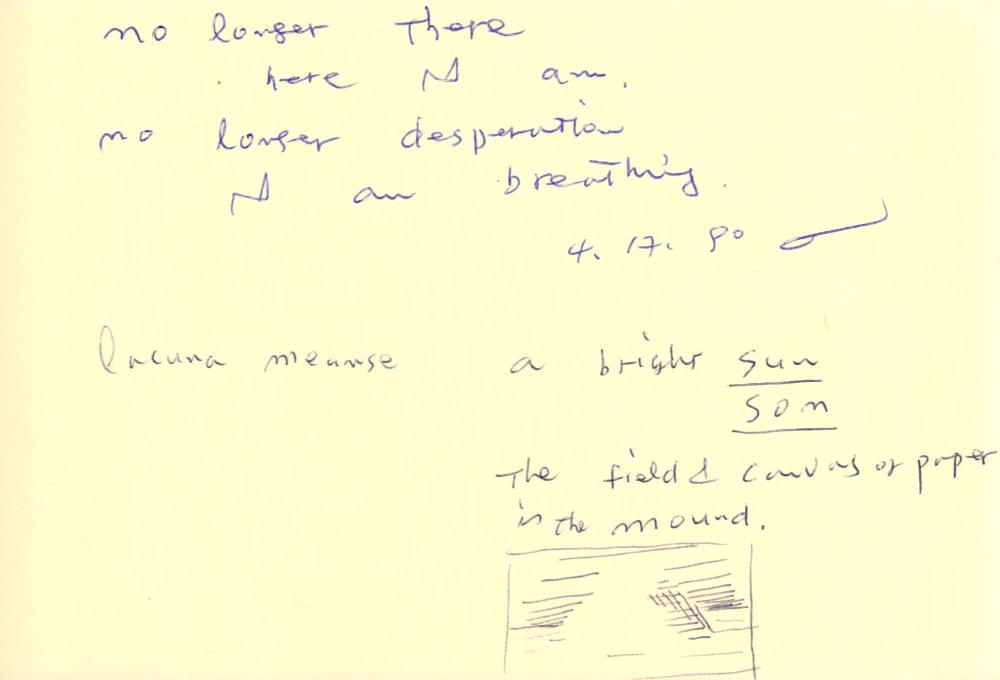 no longer there
here I am.
no longer desperation
I am breathing.
4. 17. 90
lacuna meanse a bright sun
son
The field & canvas or paper
is the mound.